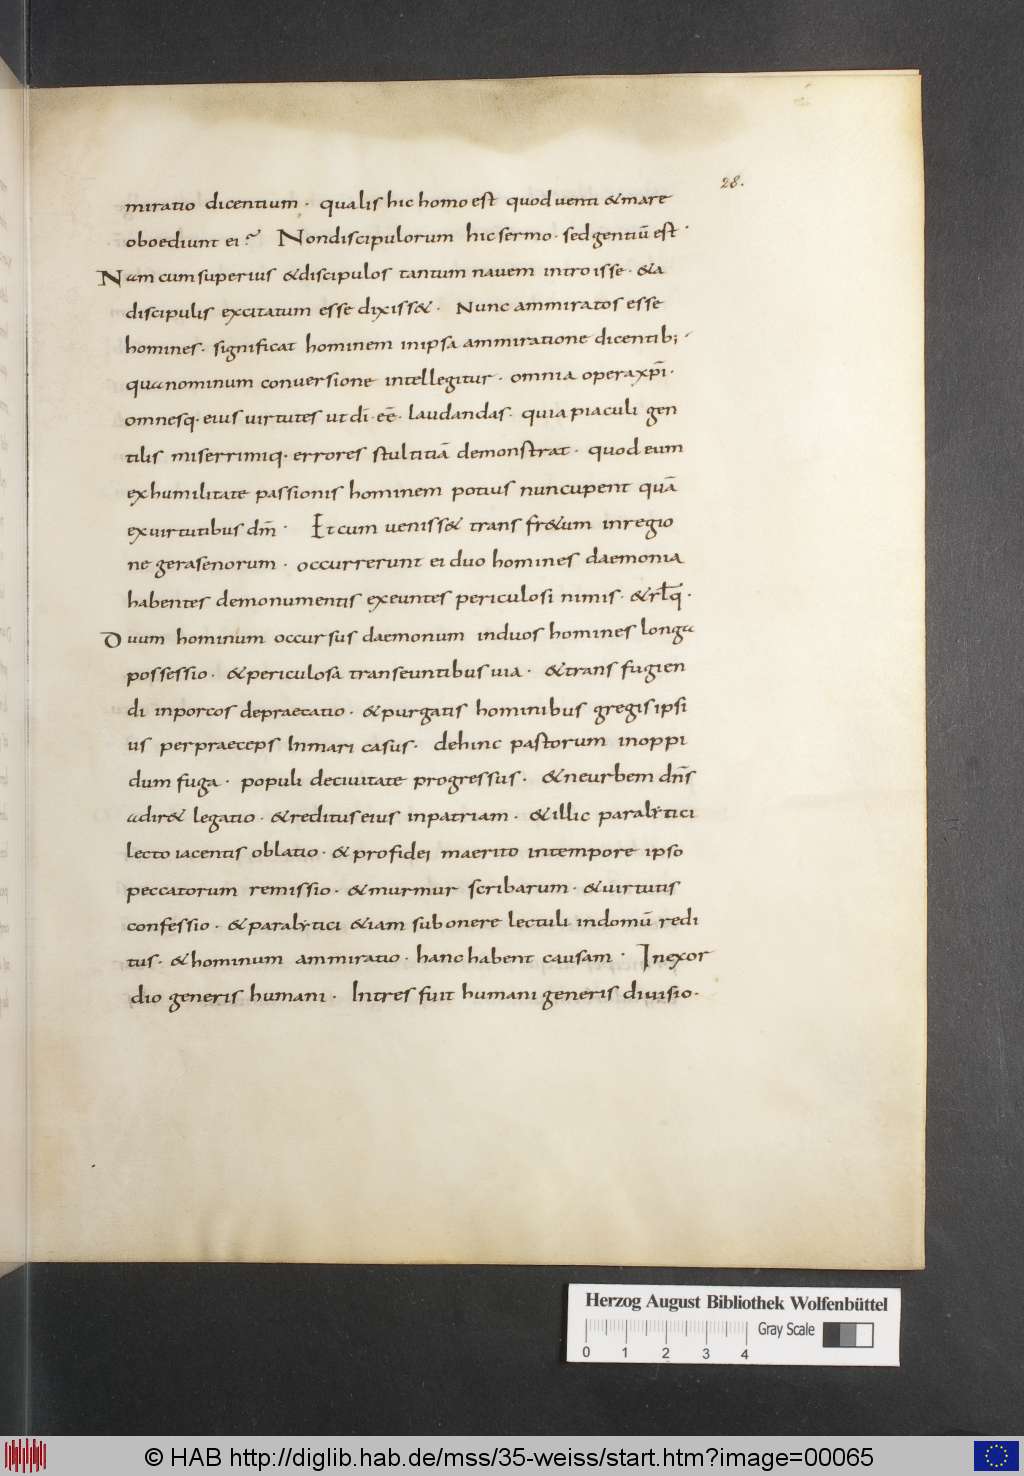 28.
miratio dicentium · qualis hic homo est quod venti & mare
oboediunt ei? Non discipulorum hic sermo · sed gentiū est ·
Nam cum superius & discipulos tantum navem introisse · & a
discipulis excitatum esse dixiss& · Nunc ammiratos esse
homines · significat hominem in ipsa ammiratione dicentib; ·
qua nominum conversione intellegitur · omnia opera xp̄i ·
omnesq· eius virtutes ut dī · eē · laudandas · quia piaculi gen
tilis miserrimiq· errores stultitiā demonstrat · quod eum
ex humilitate passionis hominem potius nuncupent quā
ex virtutibus dm̄ · Et cum veniss& trans fr&um in regio
ne gerasenorum · occurrerunt ei duo homines daemonia
habentes de monumentis exeuntes periculosi nimis · & rl̄q ·
Duum hominum occursus daemonum in duos homines longa
possessio · & periculosa transeuntibus via · & transfugien
di in porcos depraecatio · & purgatis hominibus gregis ipsi
us per praeceps In mari casus · dehinc pastorum in oppi
dum fuga · populi de civitate progressus · & ne urbem dn̄s
adir& legatio · & reditus eius in patriam · & illic paralytici
lecto iacentis oblatio · & pro fidei maerito in tempore ipso
peccatorum remissio · & murmur scribarum · & virtutis
confessio · & paralytici & iam sub onere lectuli in domū redi
tus · & hominum ammiratio · hanc habent causam · In exor
dio generis humani · In tres fuit humani generis divisio ·
Herzog August Bibliothek Wolfenbüttel
Gray Scale
0 1 2 3 4
© HAB http://diglib.hab.de/mss/35-weiss/start.htm?image=00065